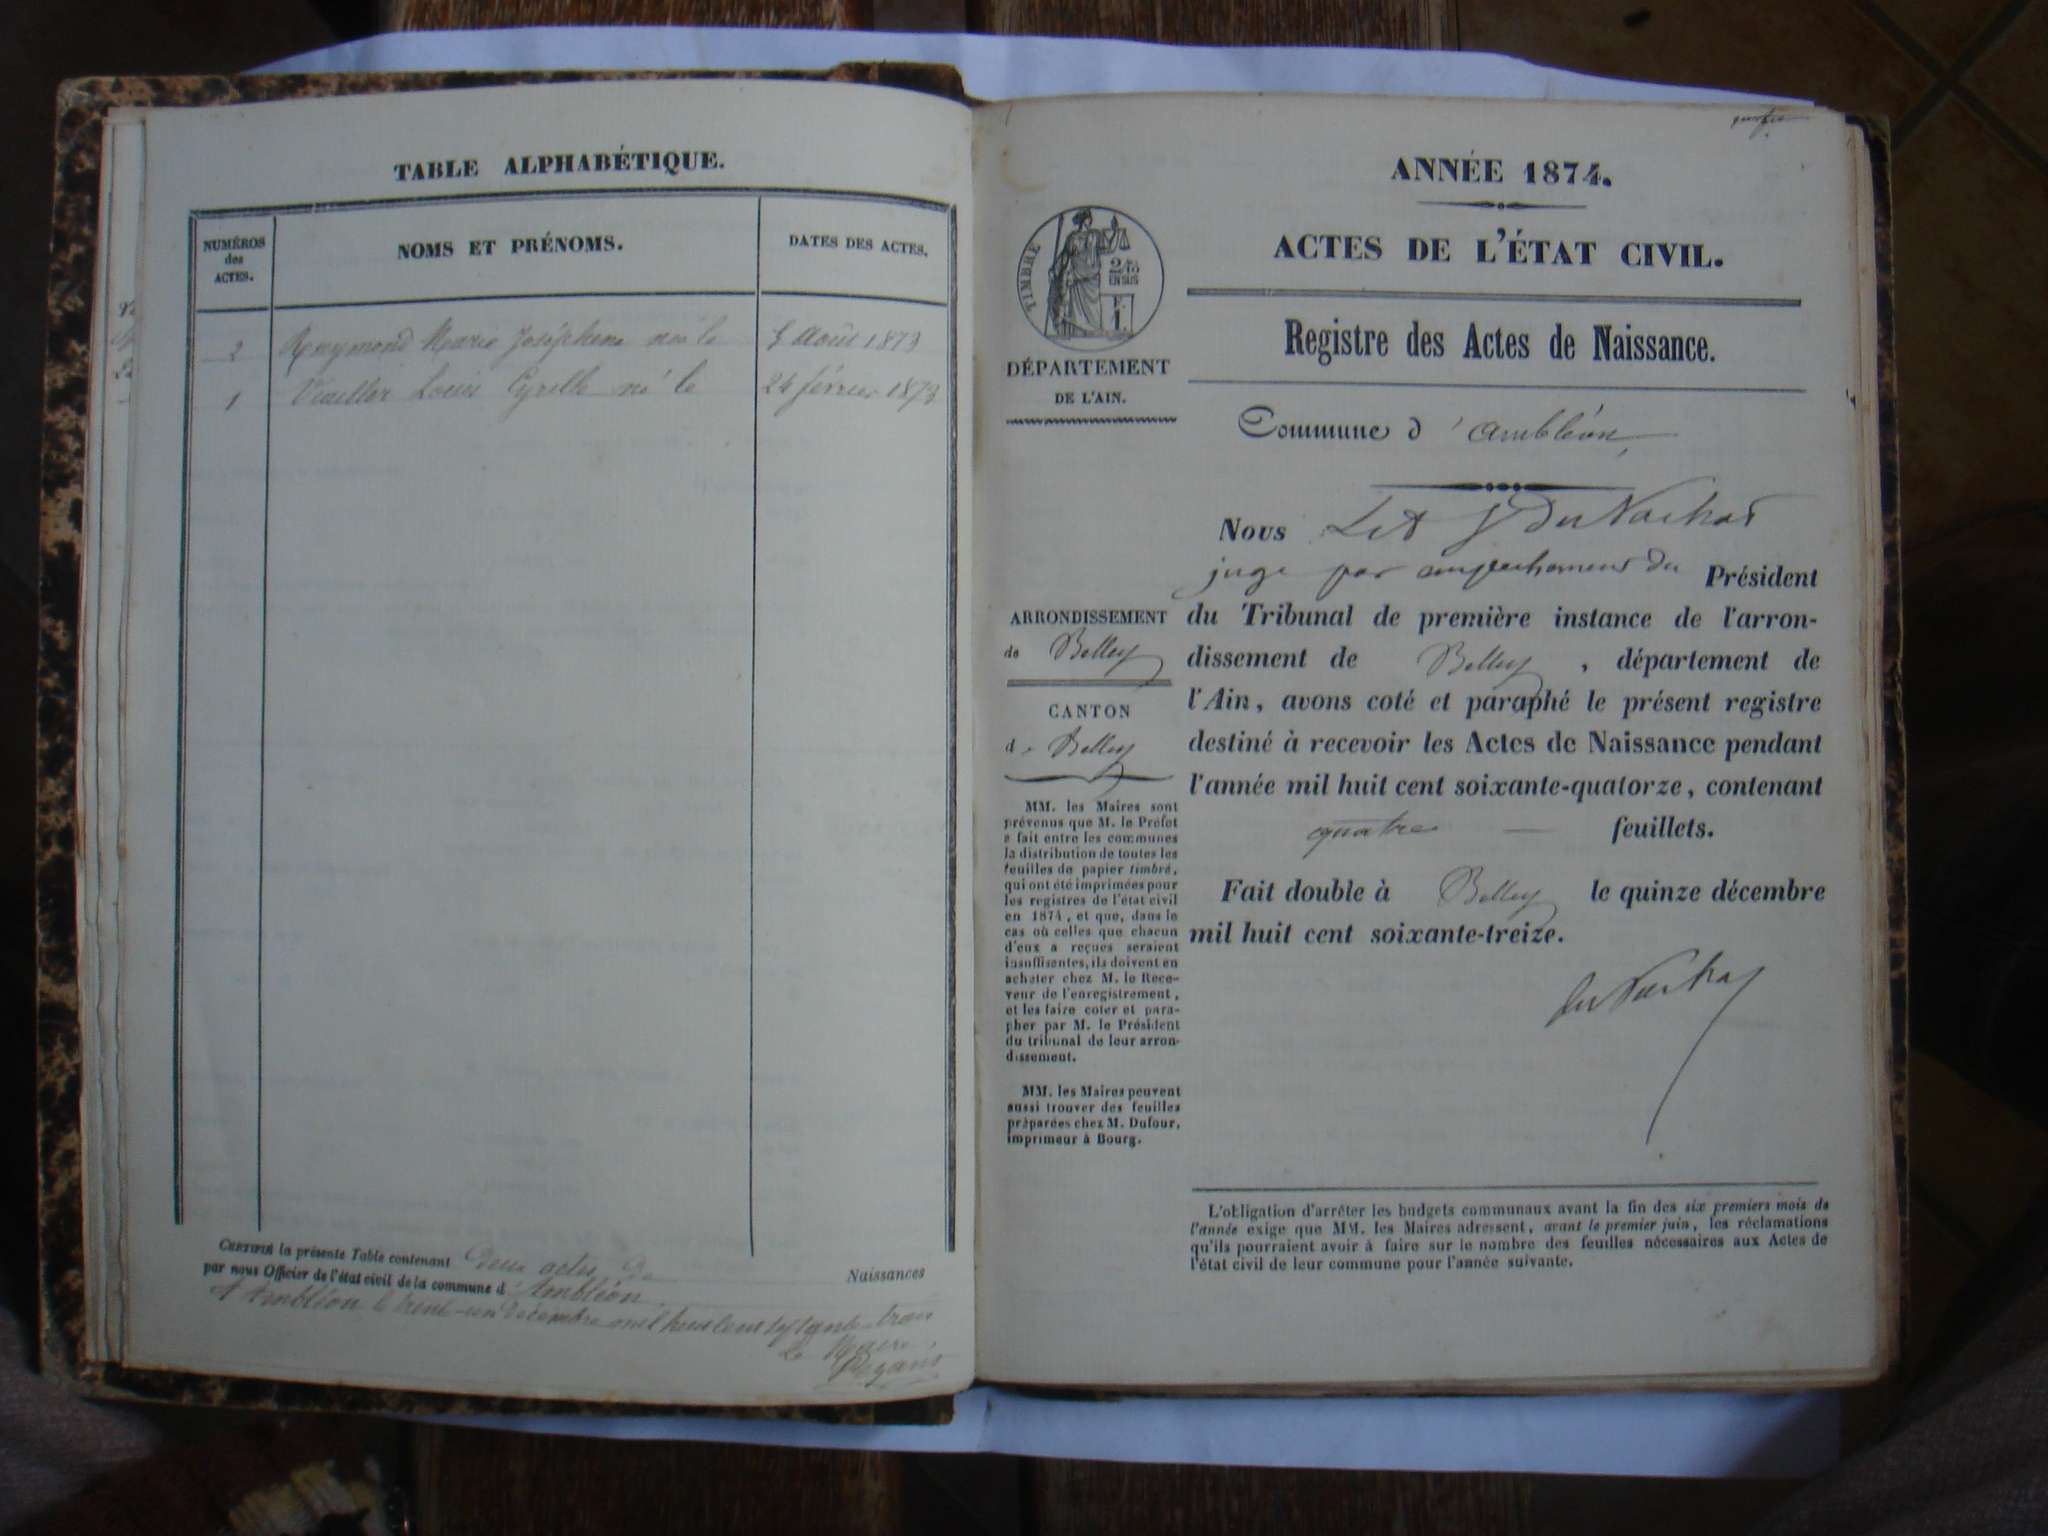 TABLE ALPHABÉTIQUE.
NUMÉROS
des
ACTES.
NOMS ET PRÉNOMS.
DATES DES ACTES.
2 Raymond Marie Joséphine née le Août 1873
1 Louis Cyrille né le 24 février 1873
CERTIFIÉ la présente Table contenant Deux actes de Naissances
par nous Officier de l'état civil de la commune d'Ambléon
A Ambléon le trent-un Décembre mil huit cent septante-trois
Le Maire
ANNÉE 1874.
ACTES DE L'ÉTAT CIVIL.
TIMBRE
2/10
EN SUS
DÉPARTEMENT
DE L'AIN.
Registre des Actes de Naissance.
Commune d'Ambléon
Nous
juge par empechement du Président
du Tribunal de première instance de l'arron-
dissement de Belley, département de
l'Ain, avons coté et paraphé le présent registre
destiné à recevoir les Actes de Naissance pendant
l'année mil huit cent soixante-quatorze, contenant
quatre — feuillets.
Fait double à Belley le quinze décembre
mil huit cent soixante-treize.
ARRONDISSEMENT
de Belley
CANTON
de Belley
MM. les Maires sont
prévenus que M. le Préfet
a fait entre les communes
la distribution de toutes les
feuilles de papier timbré,
qui ont été imprimées pour
les registres de l'état civil
en 1874, et que, dans le
cas où celles que chacun
d'eux a reçues seraient
insuffisantes, ils doivent en
acheter chez M. le Rece-
veur de l'enregistrement,
et les faire coter et para-
pher par M. le Président
du tribunal de leur arron-
dissement.
MM. les Maires peuvent
aussi trouver des feuilles
préparées chez M. Dufour,
imprimeur à Bourg.
L'obligation d'arrêter les budgets communaux avant la fin des six premiers mois de
l'année exige que MM. les Maires adressent, avant le premier juin, les réclamations
qu'ils pourraient avoir à faire sur le nombre des feuilles nécessaires aux Actes de
l'état civil de leur commune pour l'année suivante.